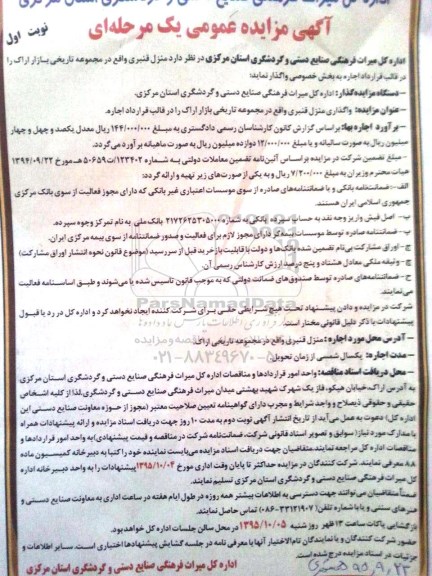 اداره کل میراث فرهنگی صنایع دستی و گردشگری استان مرکزی
آگهی مزایده عمومی یک مرحله‌ای
نوبت اول
اداره کل میراث فرهنگی صنایع دستی و گردشگری استان مرکزی در نظر دارد منزل قنبری واقع در مجموعه تاریخی بازار اراک را
در قالب قرارداد اجاره به بخش خصوصی واگذار نماید:
- دستگاه مزایده گذار: اداره کل میراث فرهنگی صنایع دستی و گردشگری استان مرکزی.
- عنوان مزایده: واگذاری منزل قنبری واقع در مجموعه تاریخی بازار اراک در قالب قرارداد اجاره.
- برآورد اجاره بها: براساس گزارش کانون کارشناسان رسمی دادگستری به مبلغ ۱۴۴/۰۰۰/۰۰۰ ریال معدل یکصد و چهل و چهار
میلیون ریال به صورت سالیانه و یا مبلغ ۱۲/۰۰۰/۰۰۰ دوازده میلیون ریال به صورت ماهیانه برآورد می‌گردد.
- مبلغ تضمین شرکت در مزایده براساس آئین‌نامه تضمین معاملات دولتی به شماره ۱۲۳۴۰۲/ت۵۰۶۵۹هـ مورخ ۱۳۹۴/۰۹/۲۲
هیات محترم وزیران به مبلغ ۷/۲۰۰/۰۰۰ ریال و به یکی از صورت‌های زیر تهیه و ارائه گردد:
الف- ضمانتنامه بانکی و یا ضمانتنامه‌های صادره از سوی موسسات اعتباری غیر بانکی که دارای مجوز فعالیت از سوی بانک مرکزی
جمهوری اسلامی ایران هستند.
ب- اصل فیش واریز وجه نقد به حساب سپرده بانکی به شماره ۲۱۷۲۶۲۵۳۰۵۰۰۰ بانک ملی به نام تمرکز وجوه سپرده.
پ- ضمانتنامه صادره توسط موسسات بیمه‌گر دارای مجوز لازم برای فعالیت و صدور ضمانتنامه از سوی بیمه مرکزی ایران.
ج- اوراق مشارکت بی‌نام تضمین شده بانک‌ها و دولت با قابلیت بازخرید قبل از سررسید (موضوع قانون نحوه انتشار اوراق مشارکت)
چ- وثیقه ملکی معادل هشتاد و پنج درصد ارزش کارشناسی رسمی آن.
ح- ضمانتنامه‌های صادره توسط صندوق‌های ضمانت دولتی که به موجب قانون تاسیس شده یا می‌شوند و طبق اساسنامه فعالیت
می‌نمایند.
شرکت در مزایده و دادن پیشنهاد تحت هیچ شرایطی حقی برای شرکت کننده ایجاد نخواهد کرد و اداره کل در رد یا قبول
پیشنهادات با ذکر دلیل قانونی مختار است.
- آدرس محل مورد اجاره: منزل قنبری واقع در مجموعه تاریخی اراک.
- مدت اجاره: یکسال شمسی از زمان تحویل.
- محل دریافت اسناد مناقصه: واحد امور قراردادها و مناقصات اداره کل میراث فرهنگی صنایع دستی و گردشگری استان مرکزی
به آدرس اراک، خیابان هپکو، فاز یک شهرک شهید بهشتی میدان میراث فرهنگی صنایع دستی و گردشگری. لذا از کلیه اشخاص
حقیقی و حقوقی ذیصلاح و واجد شرایط و مجرب دارای گواهینامه تعیین صلاحیت معتبر (مجوز از حوزه معاونت صنایع دستی این
اداره کل) دعوت به عمل می‌آید از تاریخ انتشار آگهی نوبت دوم به مدت ۱۰ روز جهت دریافت اسناد مزایده و ارائه پیشنهادات همراه
با مدارک مورد نیاز (سوابق و تصویر اسناد قانونی شرکت، ضمانت‌نامه شرکت در مناقصه و قیمت پیشنهادی) به واحد امور قراردادها و
مناقصات اداره کل مراجعه نمایند. متقاضیان جهت دریافت اسناد مزایده می‌بایست نماینده خود را کتبا به دبیرخانه کمیسیون ماده
۸۸ معرفی نمایند. شرکت کنندگان در مزایده حداکثر تا پایان وقت اداری مورخ ۱۳۹۵/۱۰/۰۴ پیشنهادات را به واحد دبیرخانه اداره
کل میراث فرهنگی صنایع دستی و گردشگری استان مرکزی تسلیم نمایند.
ضمناً متقاضیان می‌توانند جهت دسترسی به اطلاعات بیشتر همه روزه در طول ایام هفته در ساعت اداری به معاونت صنایع دستی و
هنرهای سنتی و یا با شماره تلفن (۳۳۱۲۱۹۰۷-۰۸۶) تماس حاصل نمایند.
بازگشایی پاکات ساعت ۱۳ ظهر روز شنبه ۱۳۹۵/۱۰/۰۵ در محل سالن جلسات اداره کل خواهد بود.
حضور شرکت کنندگان و یا نمایندگان تام‌الاختیار آنها با معرفی نامه در جلسه گشایش پیشنهادها اختیاری است. سایر اطلاعات و
جزئیات در اسناد مزایده درج شده است.
اداره کل میراث فرهنگی صنایع دستی و گردشگری استان مرکزی
۹۵,۹,۲۳
ParsNamadData
۰۲۱-۸۸۳۴۹۶۷۰